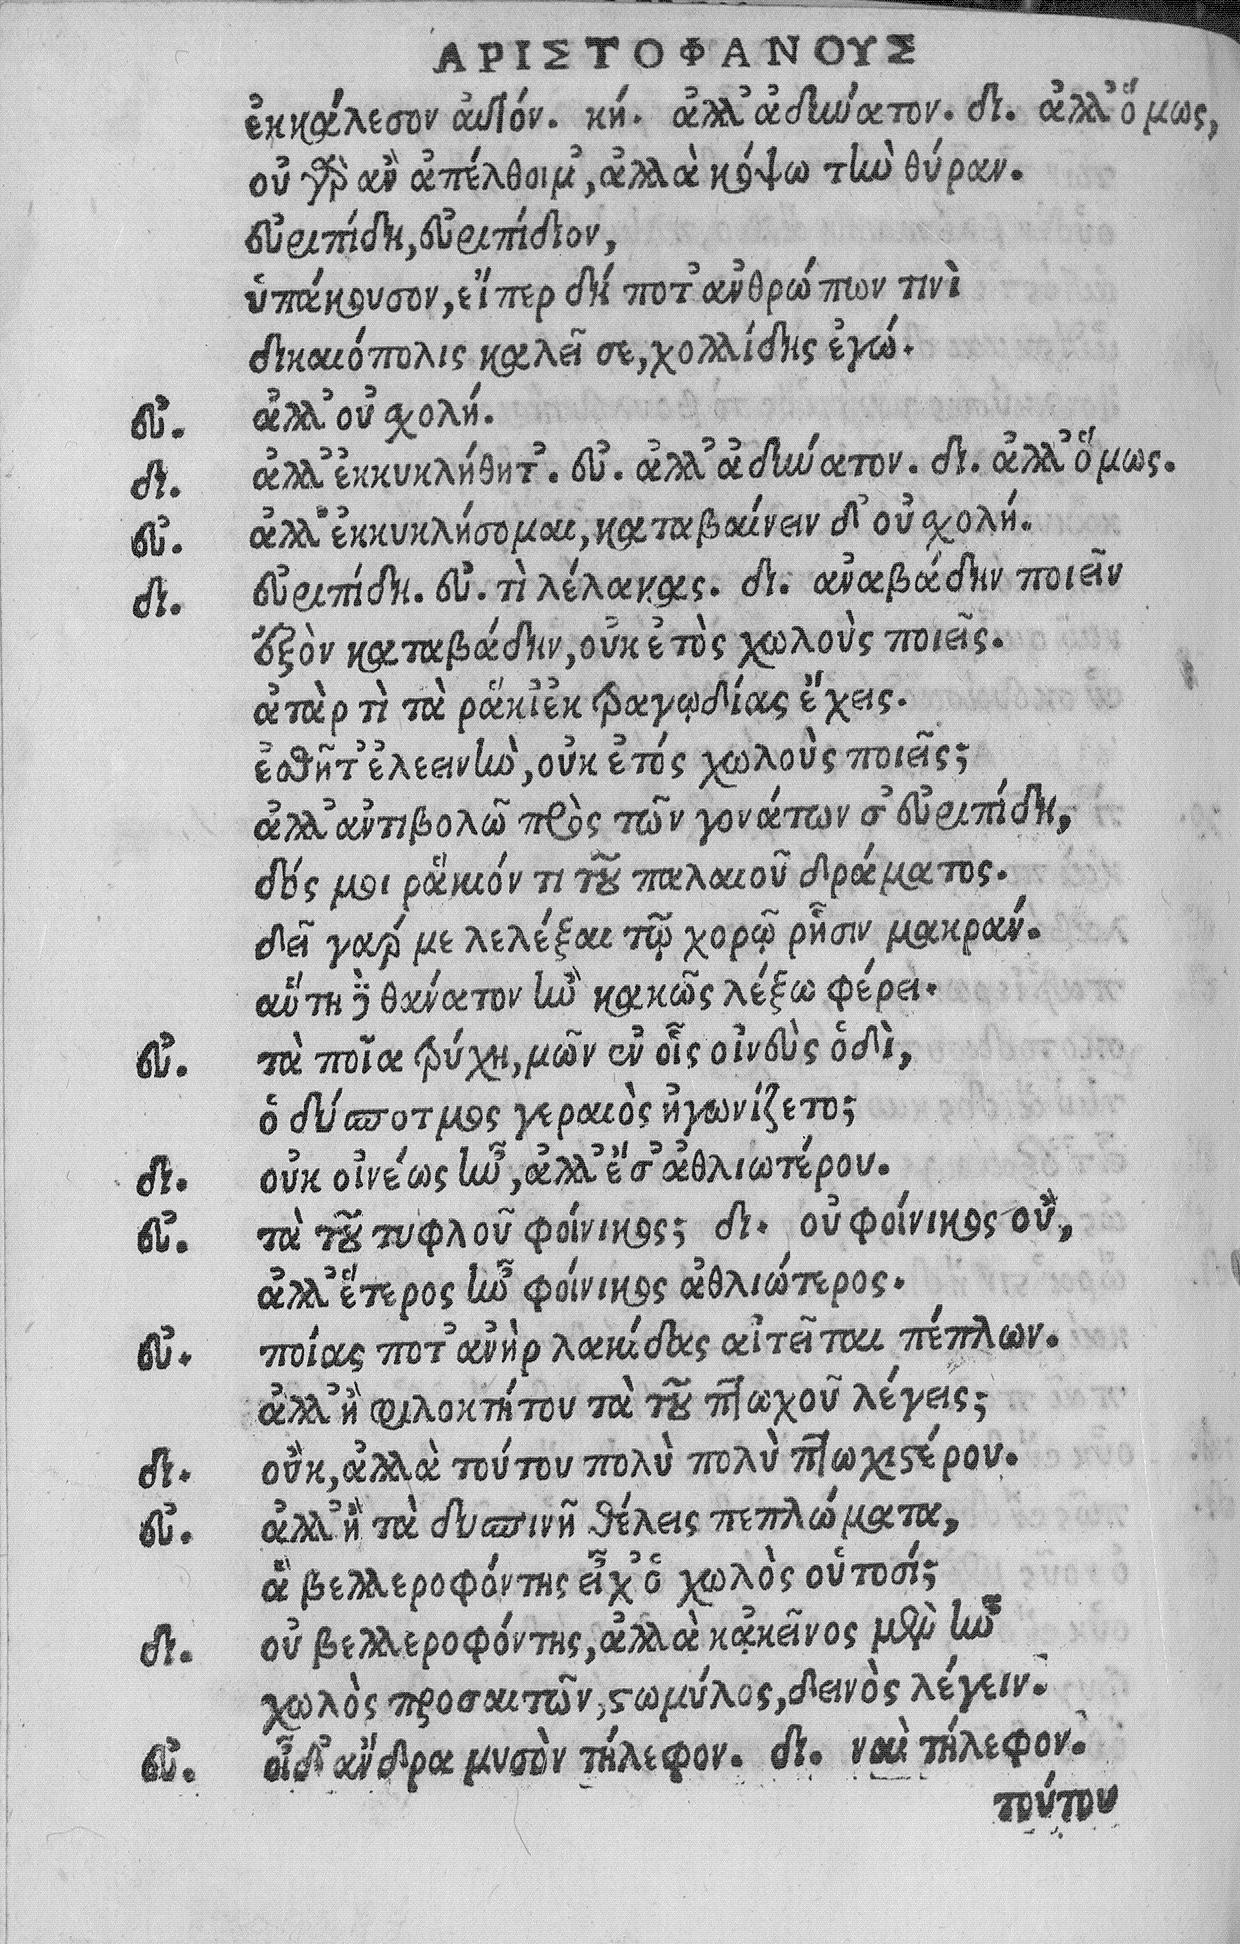 ΑΡΙΣΤΟΦΑΝΟΥΣ
ἐκκάλεσον αὐτόν. κή. ἀλλ' ἀδιωύατον. δι. ἀλλ' ὅμως,
οὐ γὰρ ἂν ἀπέλθοιμ', ἀλλὰ κόψω τὴν θύραν.
εὐριπίδη, εὐριπίδιον,
ὑπάκουσον, εἴπερ δή ποτ' ἀνθρώπων τινὶ
δικαιόπολις καλεῖ σε, χολλίδης ἐγώ.
εὐ. ἀλλ' οὐ σχολή.
δι. ἀλλ' ἐκκυκλήθητ'. εὐ. ἀλλ' ἀδύνατον. δι. ἀλλ' ὅμως.
εὐ. ἀλλ' ἐκκυκλήσομαι, καταβαίνειν δ' οὐ σχολή.
δι. εὐριπίδη. εὐ. τὶ λέλακας. δι. ἀναβάδην ποιεῖν
ἐξὸν καταβάδην, οὐκ ἐτὸς χωλοὺς ποιεῖς.
ἀτὰρ τὶ τὰ ῥάκι' ἐκ τραγῳδίας ἔχεις.
ἐσθῆτ' ἐλεεινὴν, οὐκ ἐτός χωλοὺς ποιεῖς;
ἀλλ' ἀντιβολῶ πρὸς τῶν γονάτων σ' εὐριπίδη,
δός μοι ῥάκιόν τι τοῦ παλαιοῦ δράματος.
δεῖ γάρ με λελέξαι τῷ χορῷ ῥῆσιν μακράν.
αὕτη δὲ θάνατον ἢν κακῶς λέξω φέρει.
εὐ. τὰ ποῖα τρύχη, μῶν ἐν οἷς οἰνεὺς ὁδὶ,
ὁ δύσποτμος γεραιὸς ἠγωνίζετο;
δι. οὐκ οἰνέως ἦν, ἀλλ' ἔτ' ἀθλιωτέρου.
εὐ. τὰ τοῦ τυφλοῦ φοίνικος; δι. οὐ φοίνικος οὔ,
ἀλλ' ἕτερος ἦν φοίνικος ἀθλιώτερος.
εὐ. ποίας ποτ' ἀνὴρ λακίδας αἰτεῖται πέπλων.
ἀλλ' ἢ φιλοκτήτου τὰ τοῦ πτωχοῦ λέγεις;
δι. οὔκ, ἀλλὰ τούτου πολὺ πολὺ πτωχιστέρου.
εὐ. ἀλλ' ἢ τὰ δυσπινῆ θέλεις πεπλώματα,
ἃ βελλεροφόντης εἶχ' ὁ χωλὸς οὑτοσί;
δι. οὐ βελλεροφόντης, ἀλλὰ κἀκεῖνος μὲν ἦν
χωλὸς προσαιτῶν, στωμύλος, δεινὸς λέγειν.
εὐ. οἶδ' ἄνδρα μυσὸν τήλεφον. δι. ναὶ τήλεφον.
τούτου